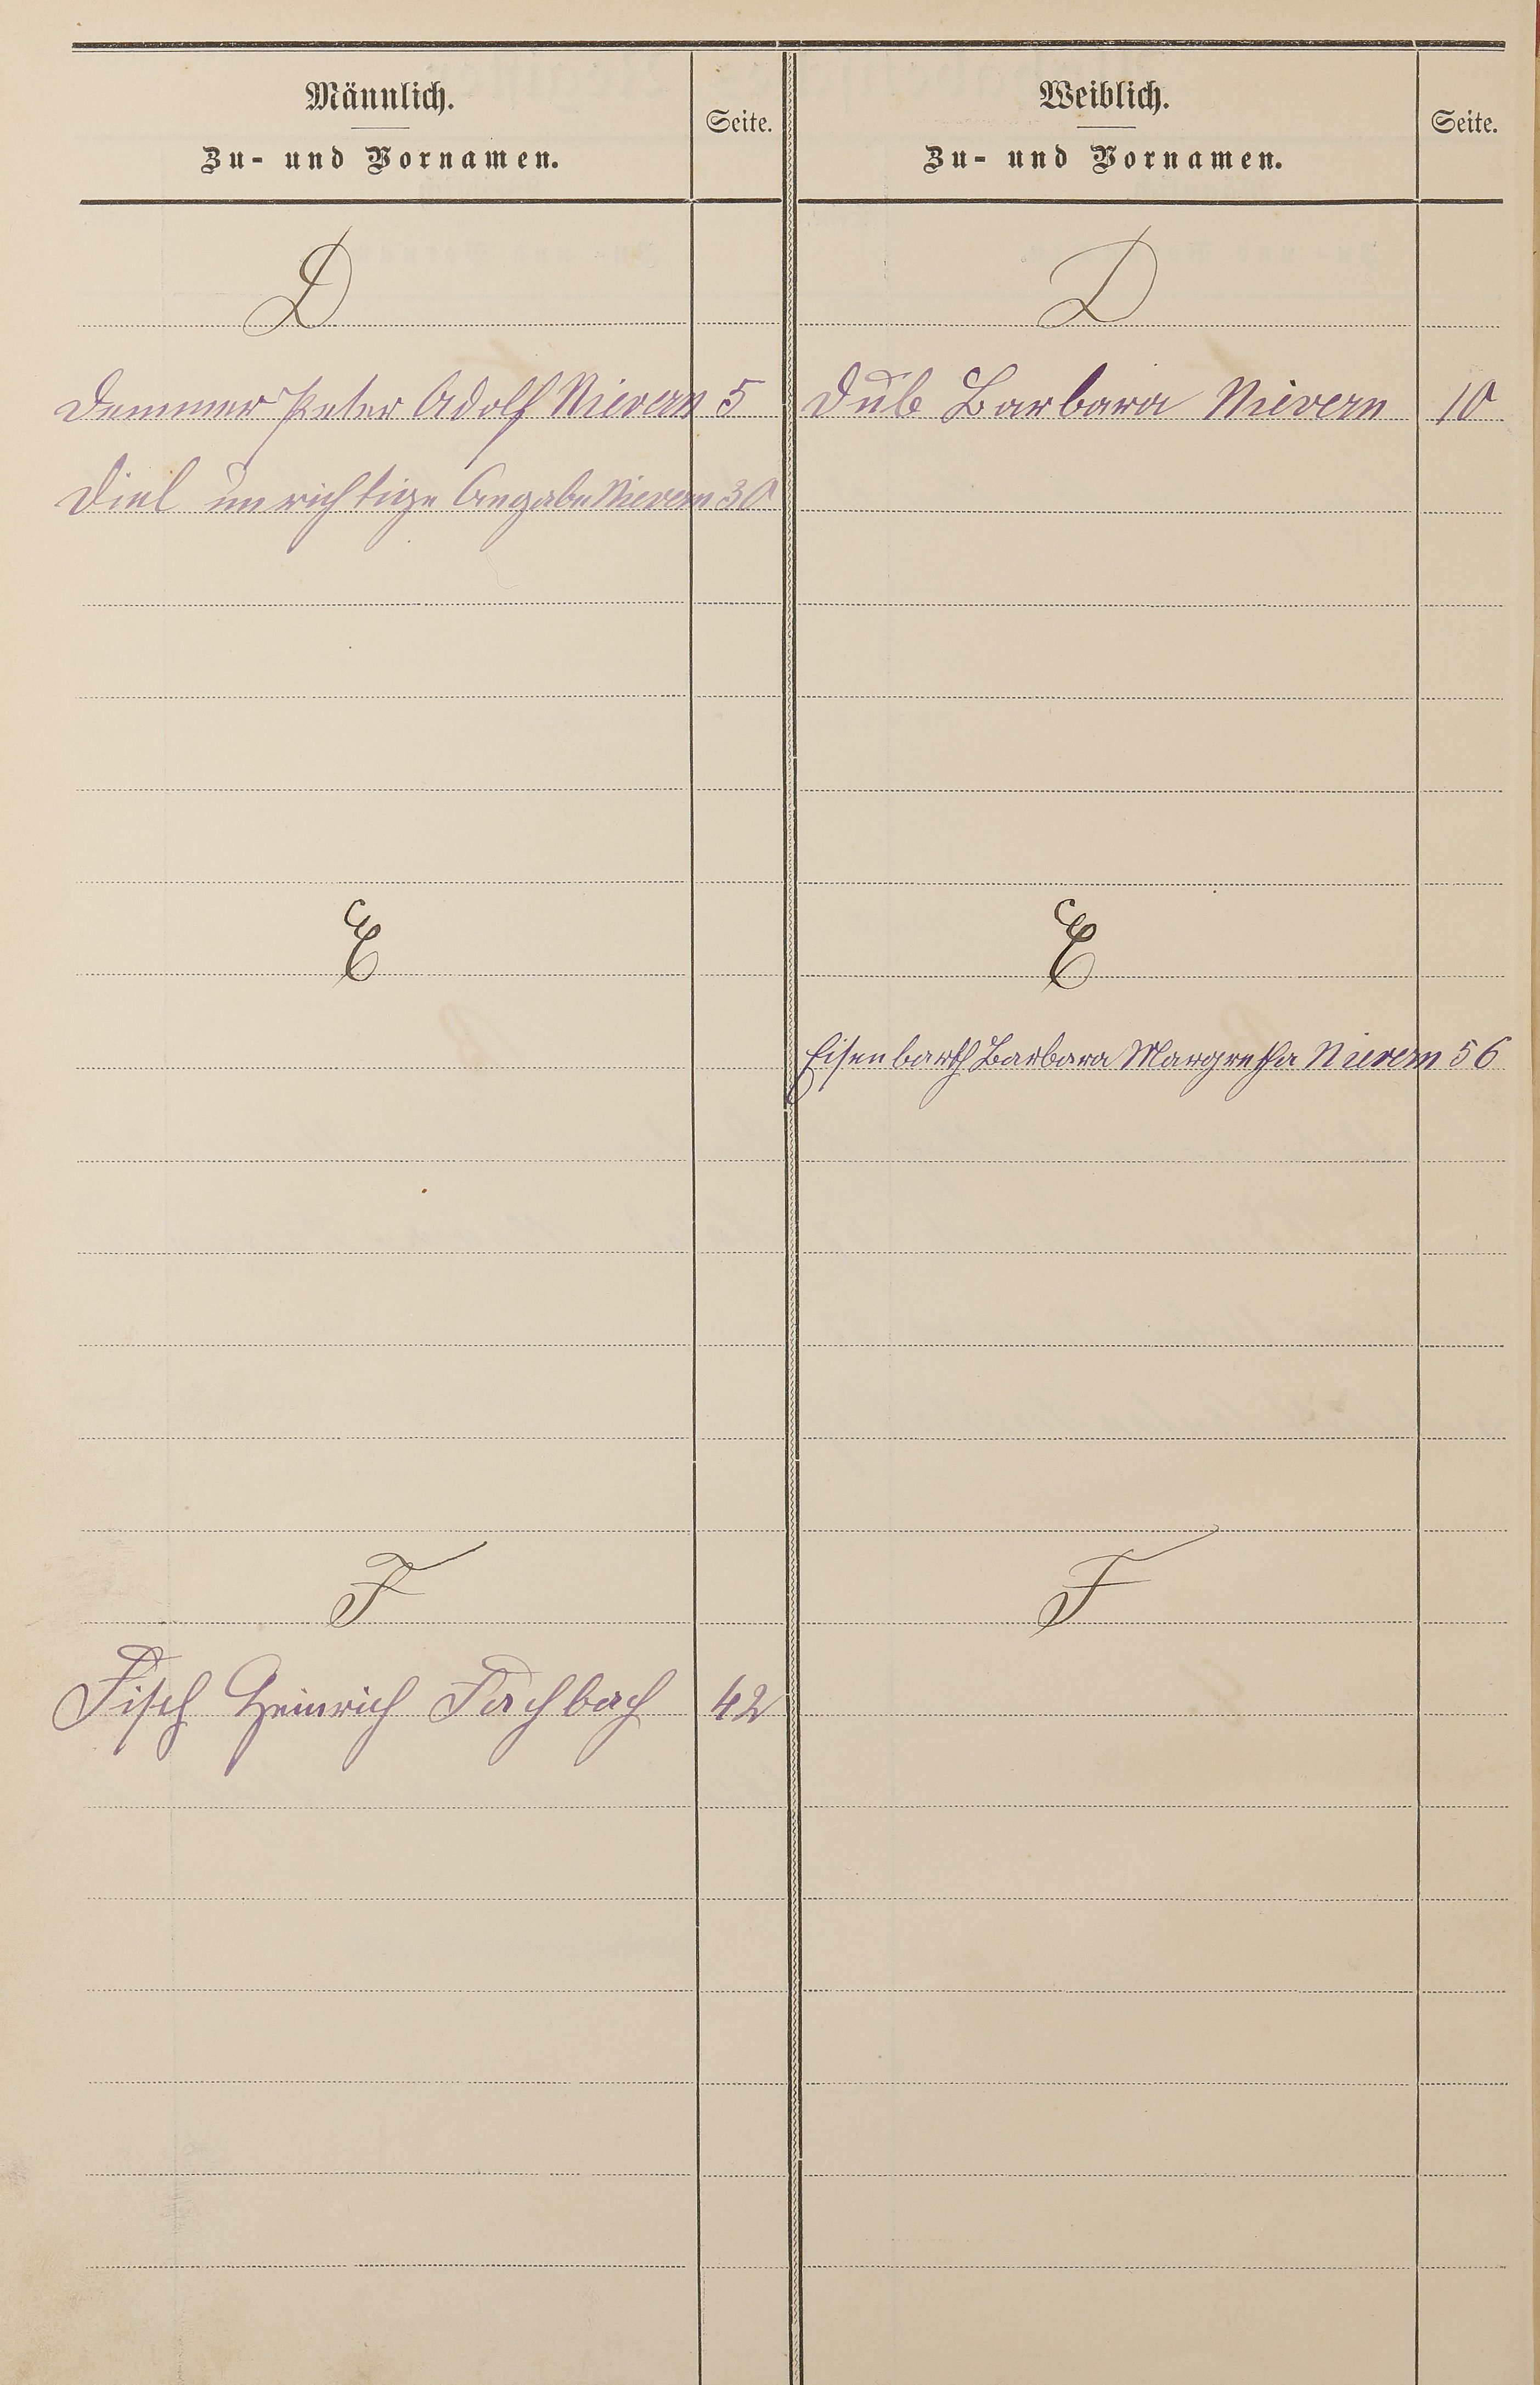 Männlich.
Zu- und Vornamen.
Seite.
Weiblich.
Zu- und Vornamen.
Seite.
D
D
Demmer Peter Adolf Nievern 5
Dub Barbara Nievern 10
Diel unrichtige Angabe Nievern 30
E
E
Eisenbarth Barbara Margretha Nievern 56
F
F
Fisch Heinrich Fachbach 42